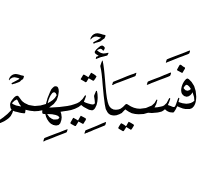 فَسَيَأْتِيهِمْ